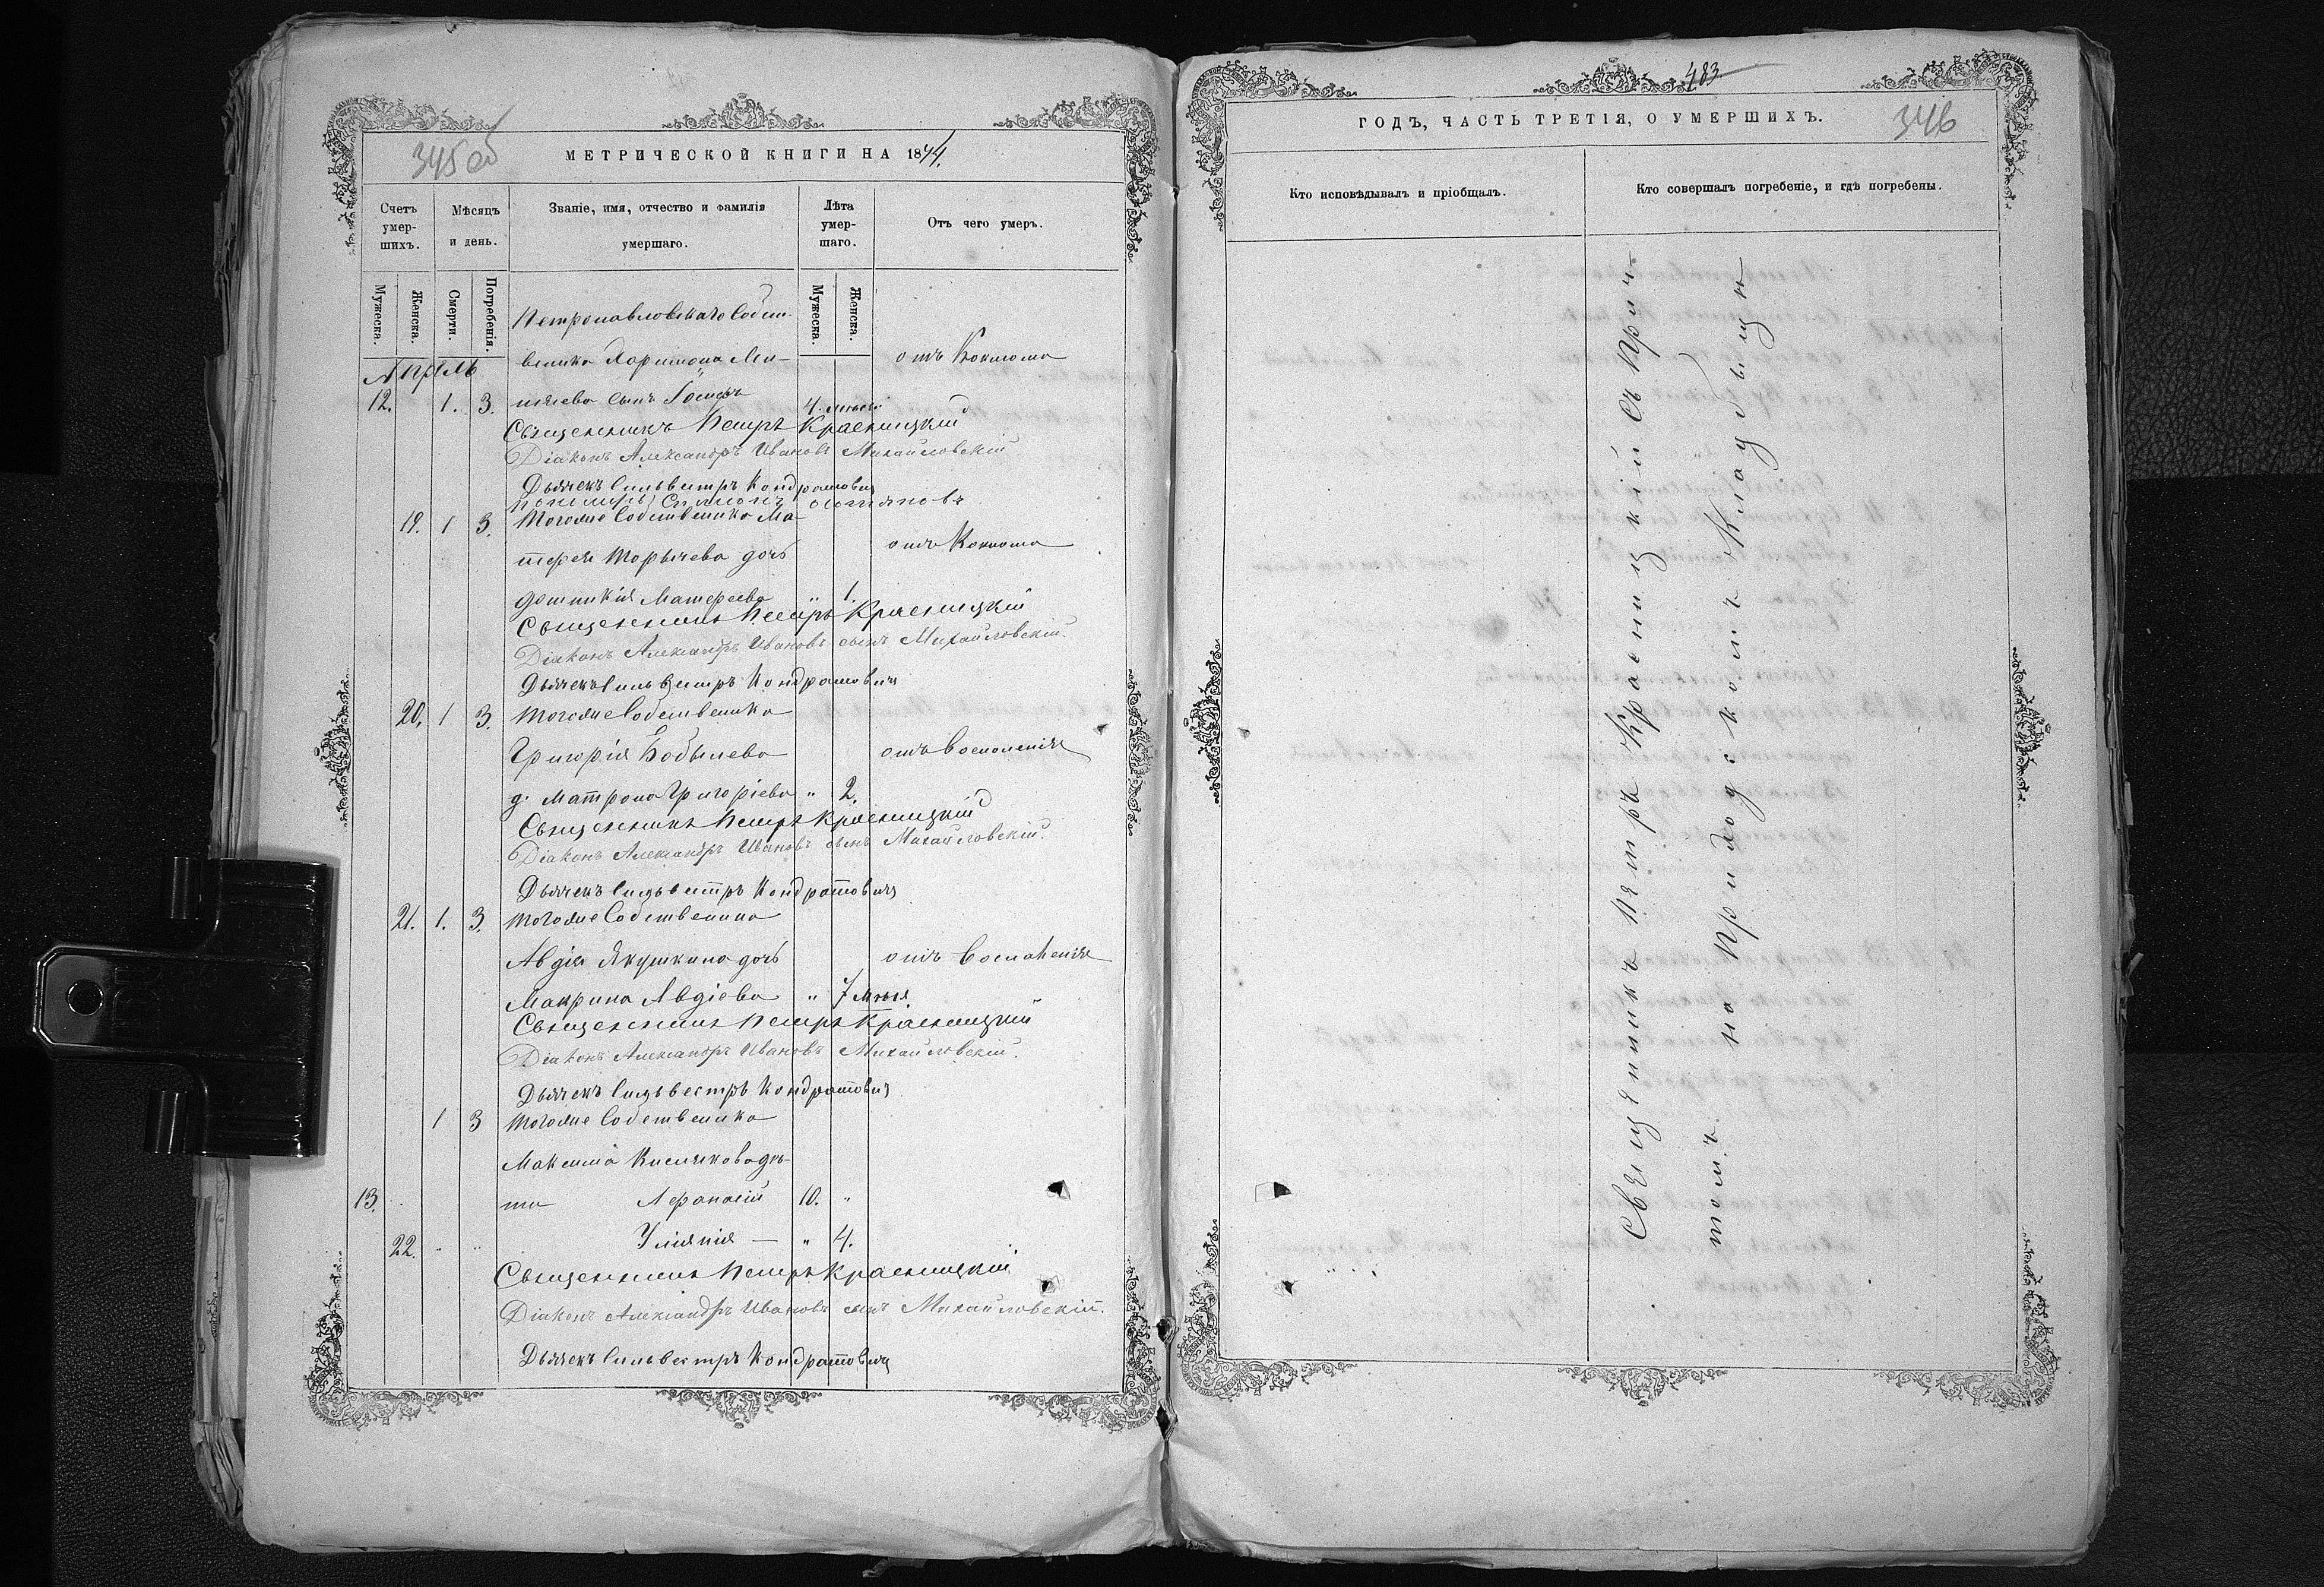 345 об
МЕТРИЧЕСКОЙ КНИГИ НА 1874.
Счетъ умер-шихъ.
Мѣсяцъ и день.
Званіе, имя, отчество и фамилія умершаго.
Лѣта умер-шаго.
Отъ чего умеръ.
Мужеска.
Женска.
Смерти.
Погребенія.
Мужеска.
Женска.
Петропавловскаго Собст-
Апрѣль
веника Харитона Ми-
отъ Коклюша
12. 1. 3. сынъ Іосифъ 4. мѣсяц
Священникъ Петръ Красницкій
Діаконъ Александръ Ивановъ Михайловскій
Дьячекъ Сильвестръ Кондратовичъ
19. 1 3. Тогоже Собственика Ма-
отъ Коклюша
тфея Торычева дочь
Матфеева " 1.
Священникъ Петръ Красницкій
Діаконъ Александръ Ивановъ сынъ Михайловскій.
Дьячекъ Сильвестръ Кондратовичъ
20. 1 3. Тогоже Собственика
Григорія Бобылева
отъ Воспаленія
д. Матрона Григоріева " 2.
Священникъ Петръ Красницкій
Діаконъ Александръ Ивановъ сынъ Михайловскій.
Дьячекъ Сильвестръ Кондратовичъ
21. 1. 3. Тогоже Собственика
Авдія Якушкина дочь
отъ Воспаленія
Макрина Авдіева " 7 мѣся.
Священникъ Петръ Красницкій
Діаконъ Александръ Ивановъ Михайловскій.
Дьячекъ Сильвестръ Кондратовичъ
1 3 Тогоже Собственика
Максима Кислякова дѣ-
13. ти Афанасій 10. "
22. " " Уліянія — " 4.
Священникъ Петръ Красницкій
Діаконъ Александръ Ивановъ сынъ Михайловскій.
Дьячекъ Сильвестръ Кондратовичъ
483
ГОДЪ, ЧАСТЬ ТРЕТІЯ, О УМЕРШИХЪ.
346
Кто исповѣдывалъ и пріобщалъ.
Кто совершалъ погребеніе, и гдѣ погребены.
Священникъ Петръ Красницкій съ При-
томъ на Приходскомъ Кладбищи